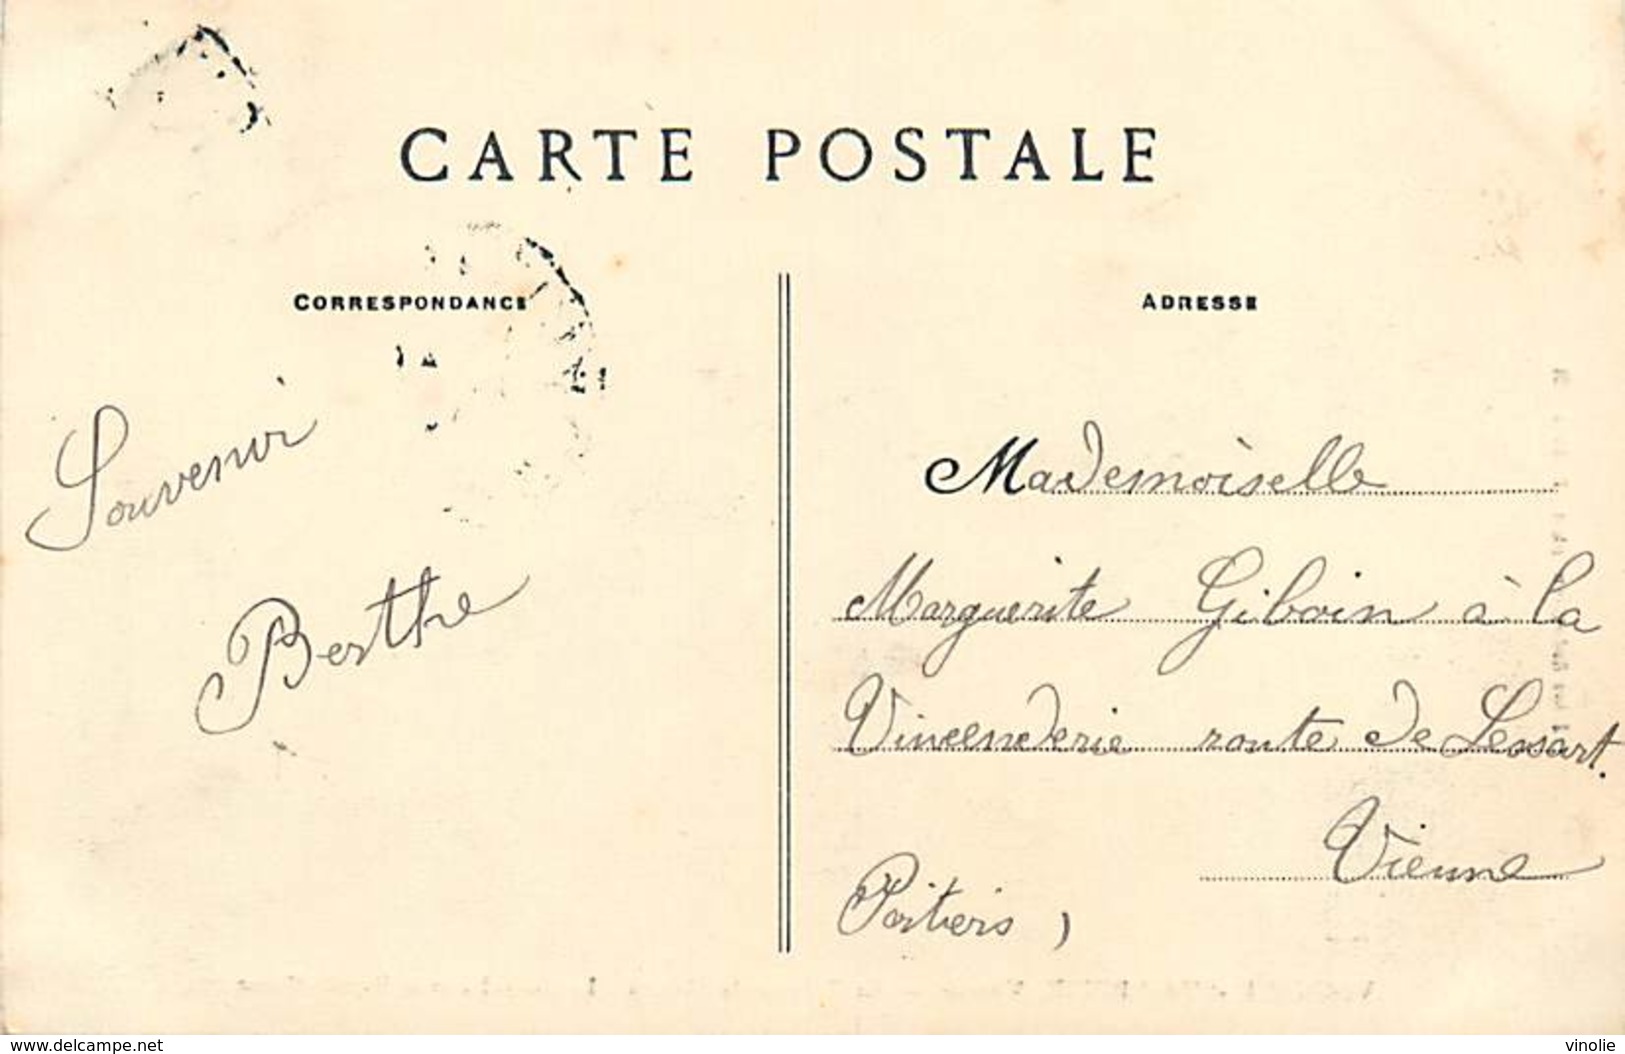 CARTE POSTALE
CORRESPONDANCE
Souvenir
Berthe
ADRESSE
Mademoiselle
Marguerite Giboin à la
Vincenderie route de Lessart.
Vienne
Poitiers,
www.delcampe.net
vinolie